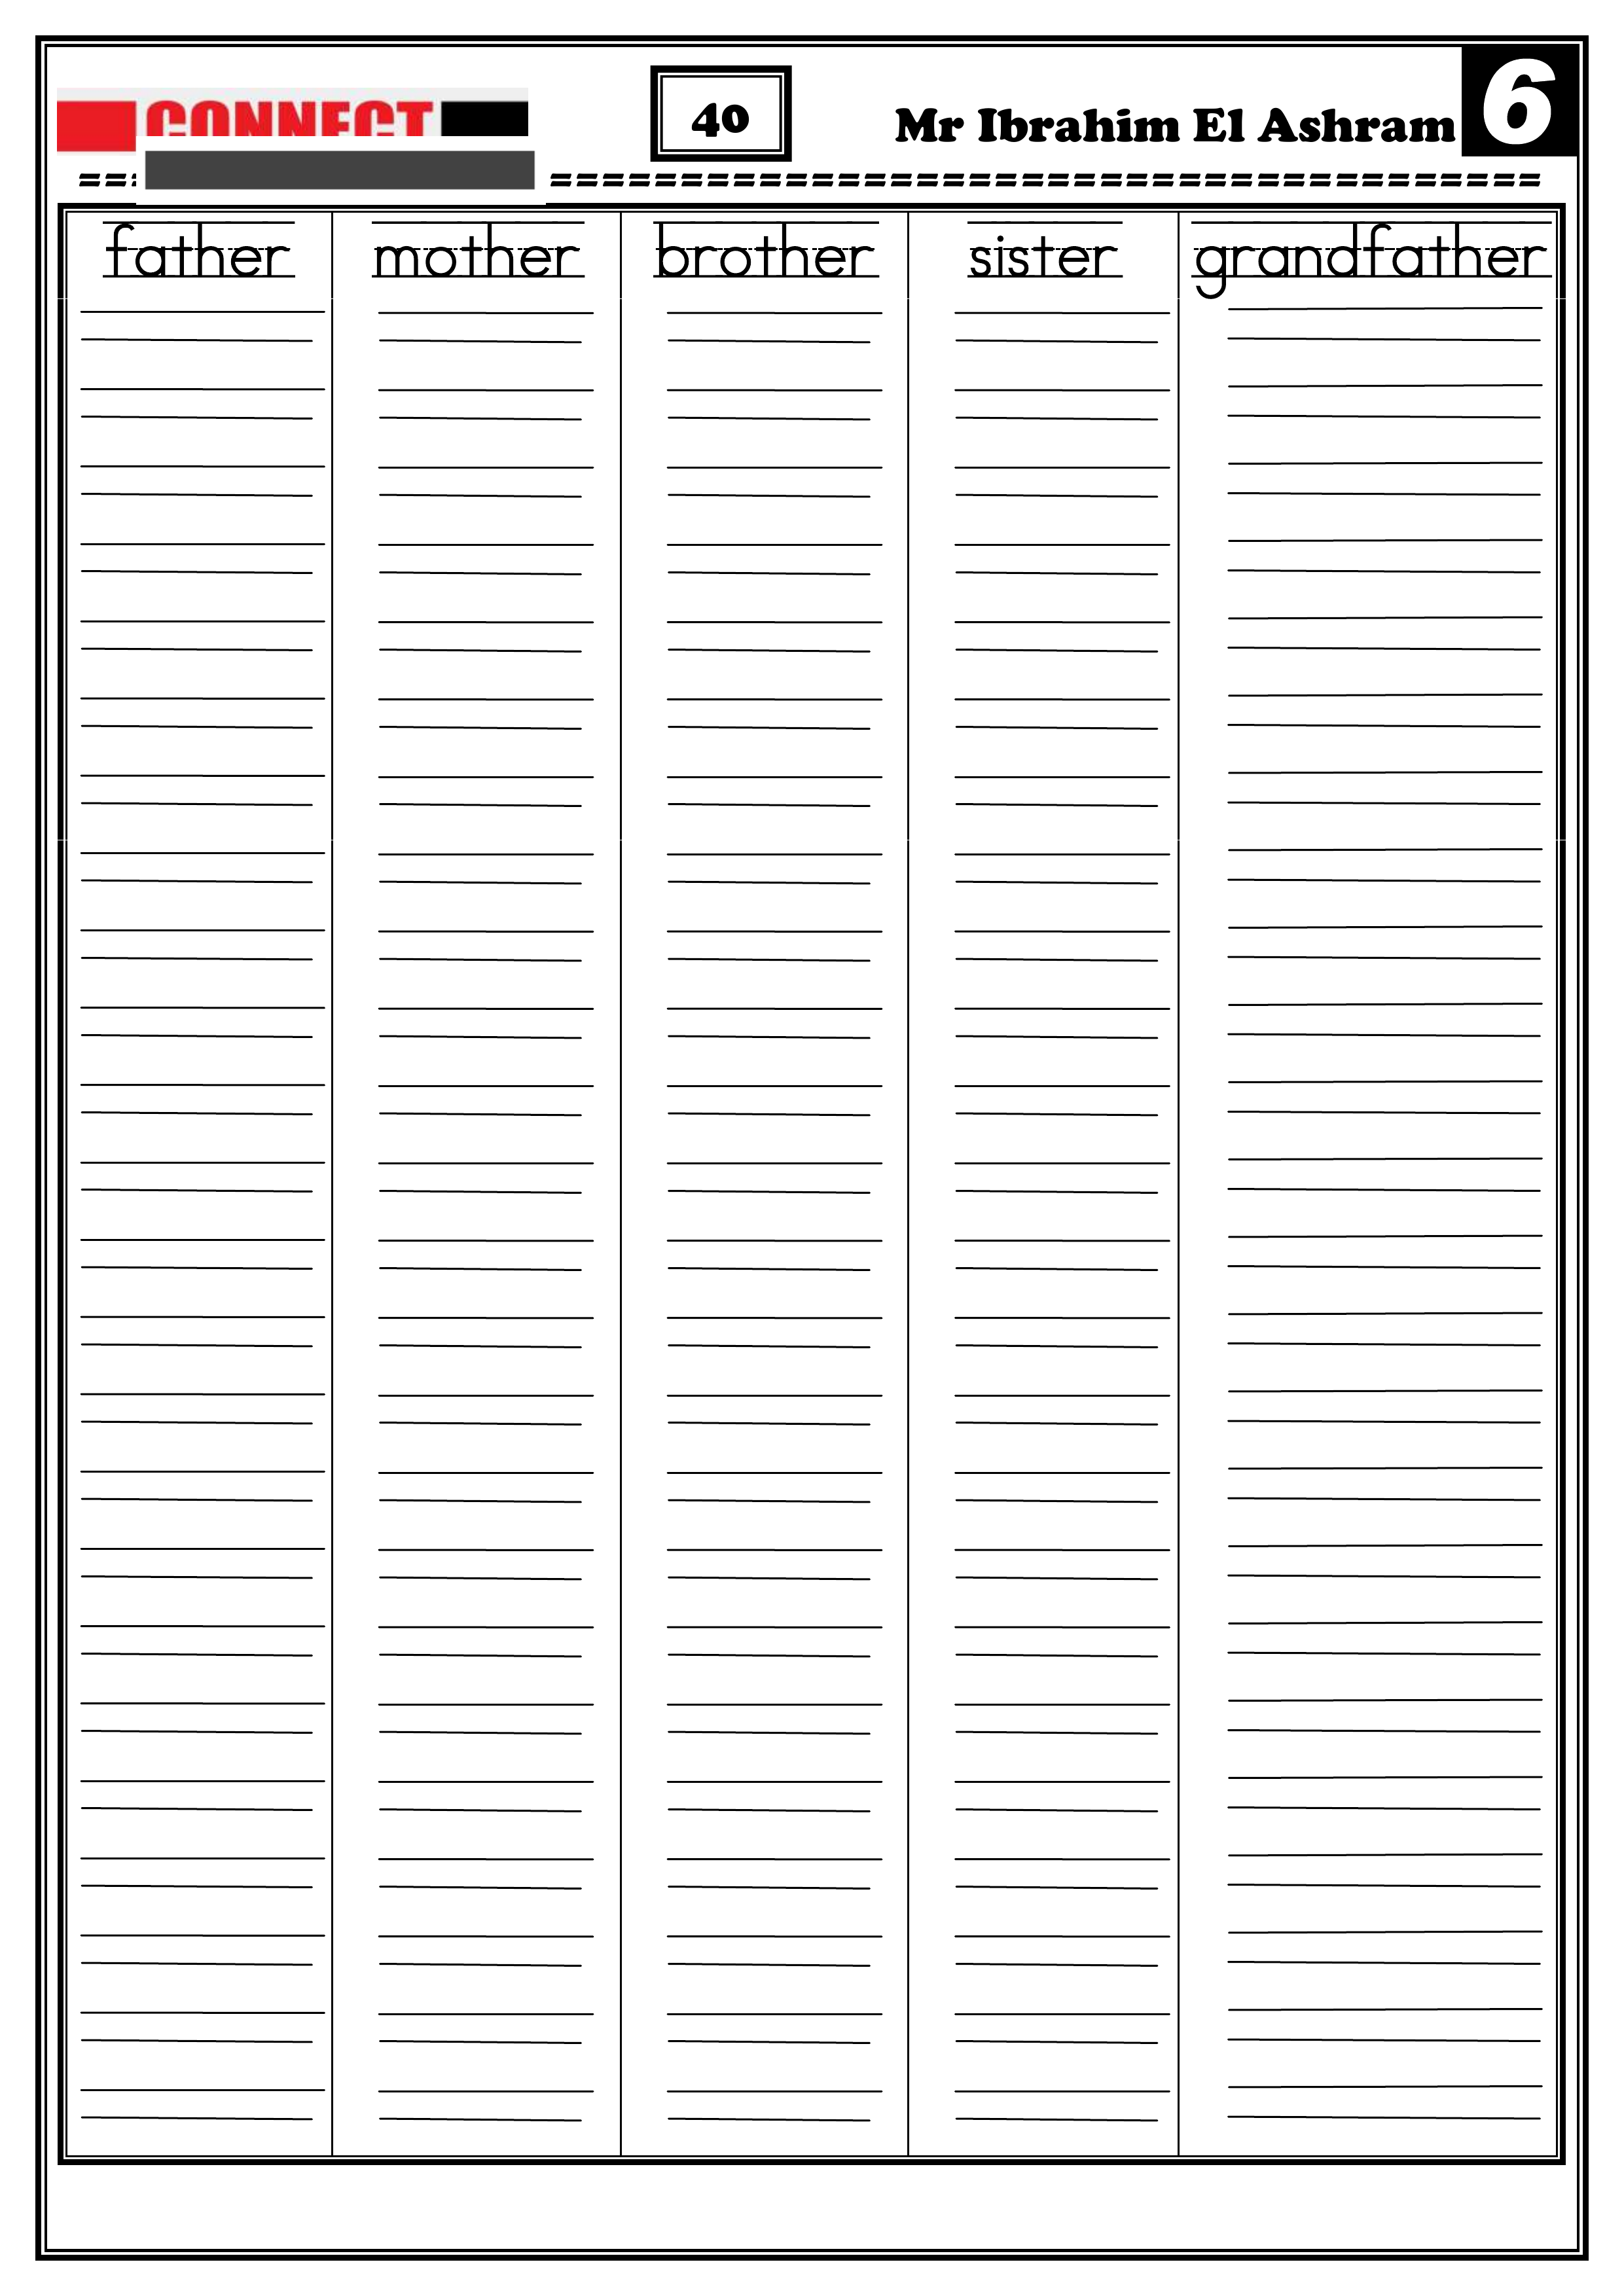 CONNECT
40
Mr Ibrahim El Ashram
6
father mother brother sister grandfather